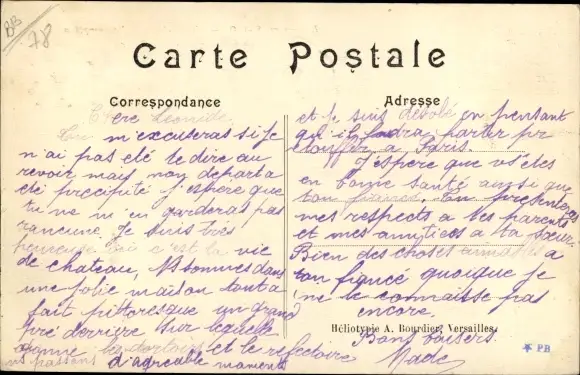 BB
78
Carte Postale
Correspondance
Chère Léonide
Tu m'excuseras si je
n'ai pas été te dire au
revoir mais mon départ a
été précipité j'espère que
tu ne m'en garderas pas
rancune. Je suis très
heureuse ici c'est la vie
de chateau, Ns sommes dans
une jolie maison tout à
fait pittoresque un grand
pré derrière sur lequelle
donne les dortoirs et le réfectoire
ns passons d'agreable moments
Adresse
et je suis désolé en pensant
qu'il faudra partir pr
étouffer à Paris.
J'espère que vs êtes
en bonne santé ainsi que
ton fiancé. En présentez
mes respects a tes parents
et mes amitiés a ta sœur
Bien des choses aimables a
ton fiancé quoique je
ne le connaisse pas
encore.
Héliotypie A. Bourdier, Versailles
Bons baisers
Made
PB